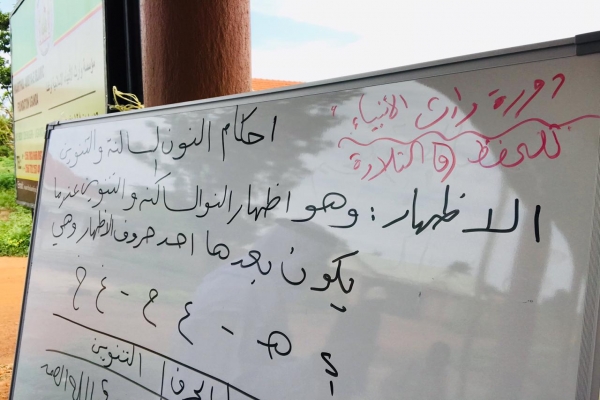 دورة وراث الانبياء
للحفظ و التلاوة
احكام النون لساكنة والتنوين
الاظهار : وهو اظهار النوالساكنه والتنوين عندما
يكون بعدها احد حروف الاظهار وهي
أ ه - ع ح - غ خ
الحرف التنوين